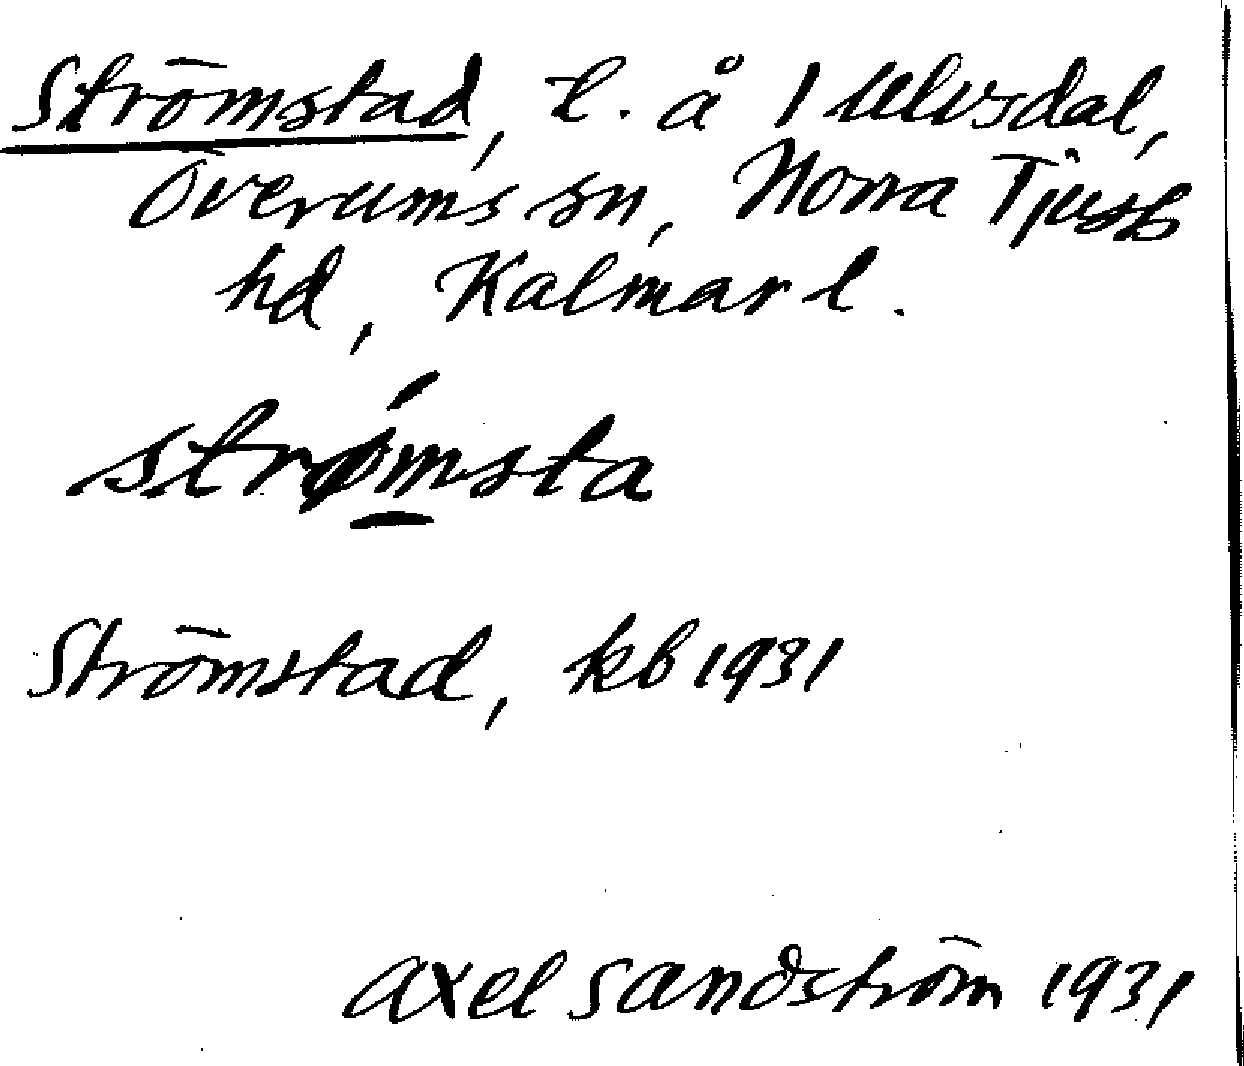 Strömstad, l. å 1 Ulvsdal,
Överums sn, Norra Tjusts
hd, Kalmar l.
strømsta
Strömstad, kb 1931
Axel Sandström 1931